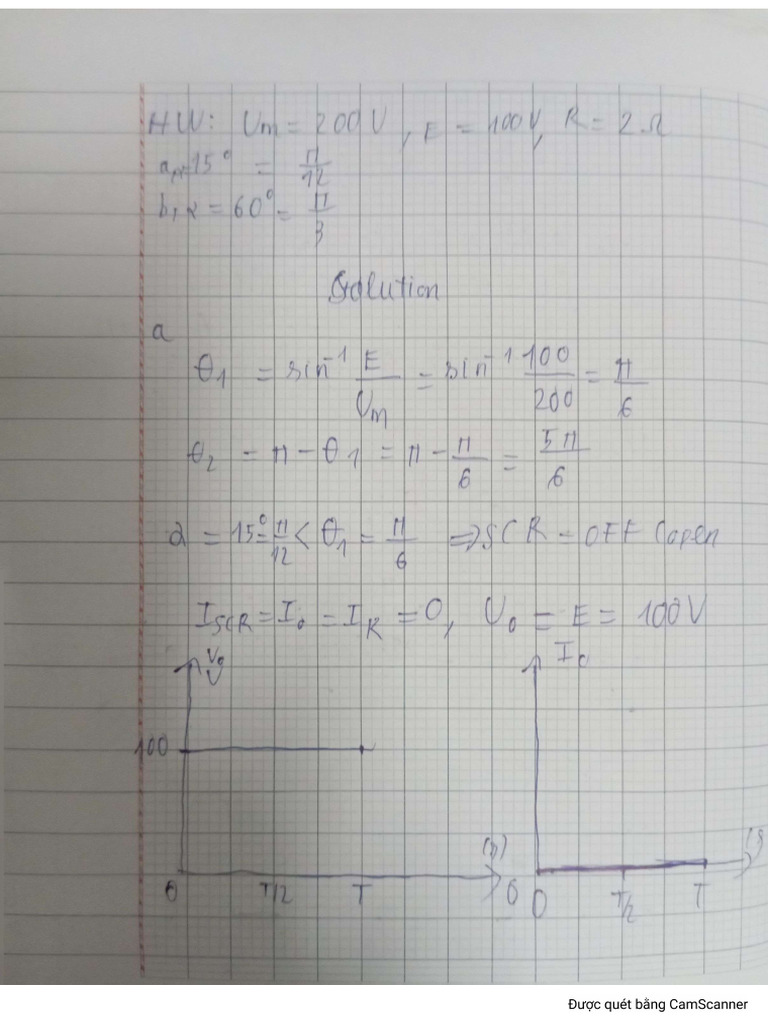 HW: Um = 200V, E = 100V, R = 2Ω
a, α=15° = π/12
b, α = 60° = π/3
Solution
a
θ1 = sin⁻¹ E/Um = sin⁻¹ 100/200 = π/6
θ2 = π - θ1 = π - π/6 = 5π/6
α = 15° = π/12 < θ1 = π/6 => SCR = OFF (open
ISCR = Io = IR = 0, Uo = E = 100V
Vo
Io
100
(s)
0 T/2 T
0 T/2 T
Được quét bằng CamScanner